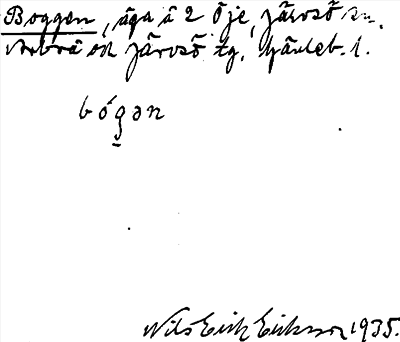 Boggen, äga å 2 Öje, Järvsö sn.
Arbrå och Järvsö tg. Gävleb. l.
bógən
Nils Erik Eriksson 1935.